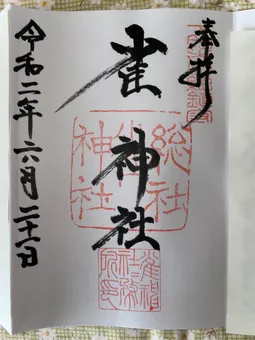 奉拝
雀神社
令和二年六月二十一日
総社
神社
雀神
社務
所印